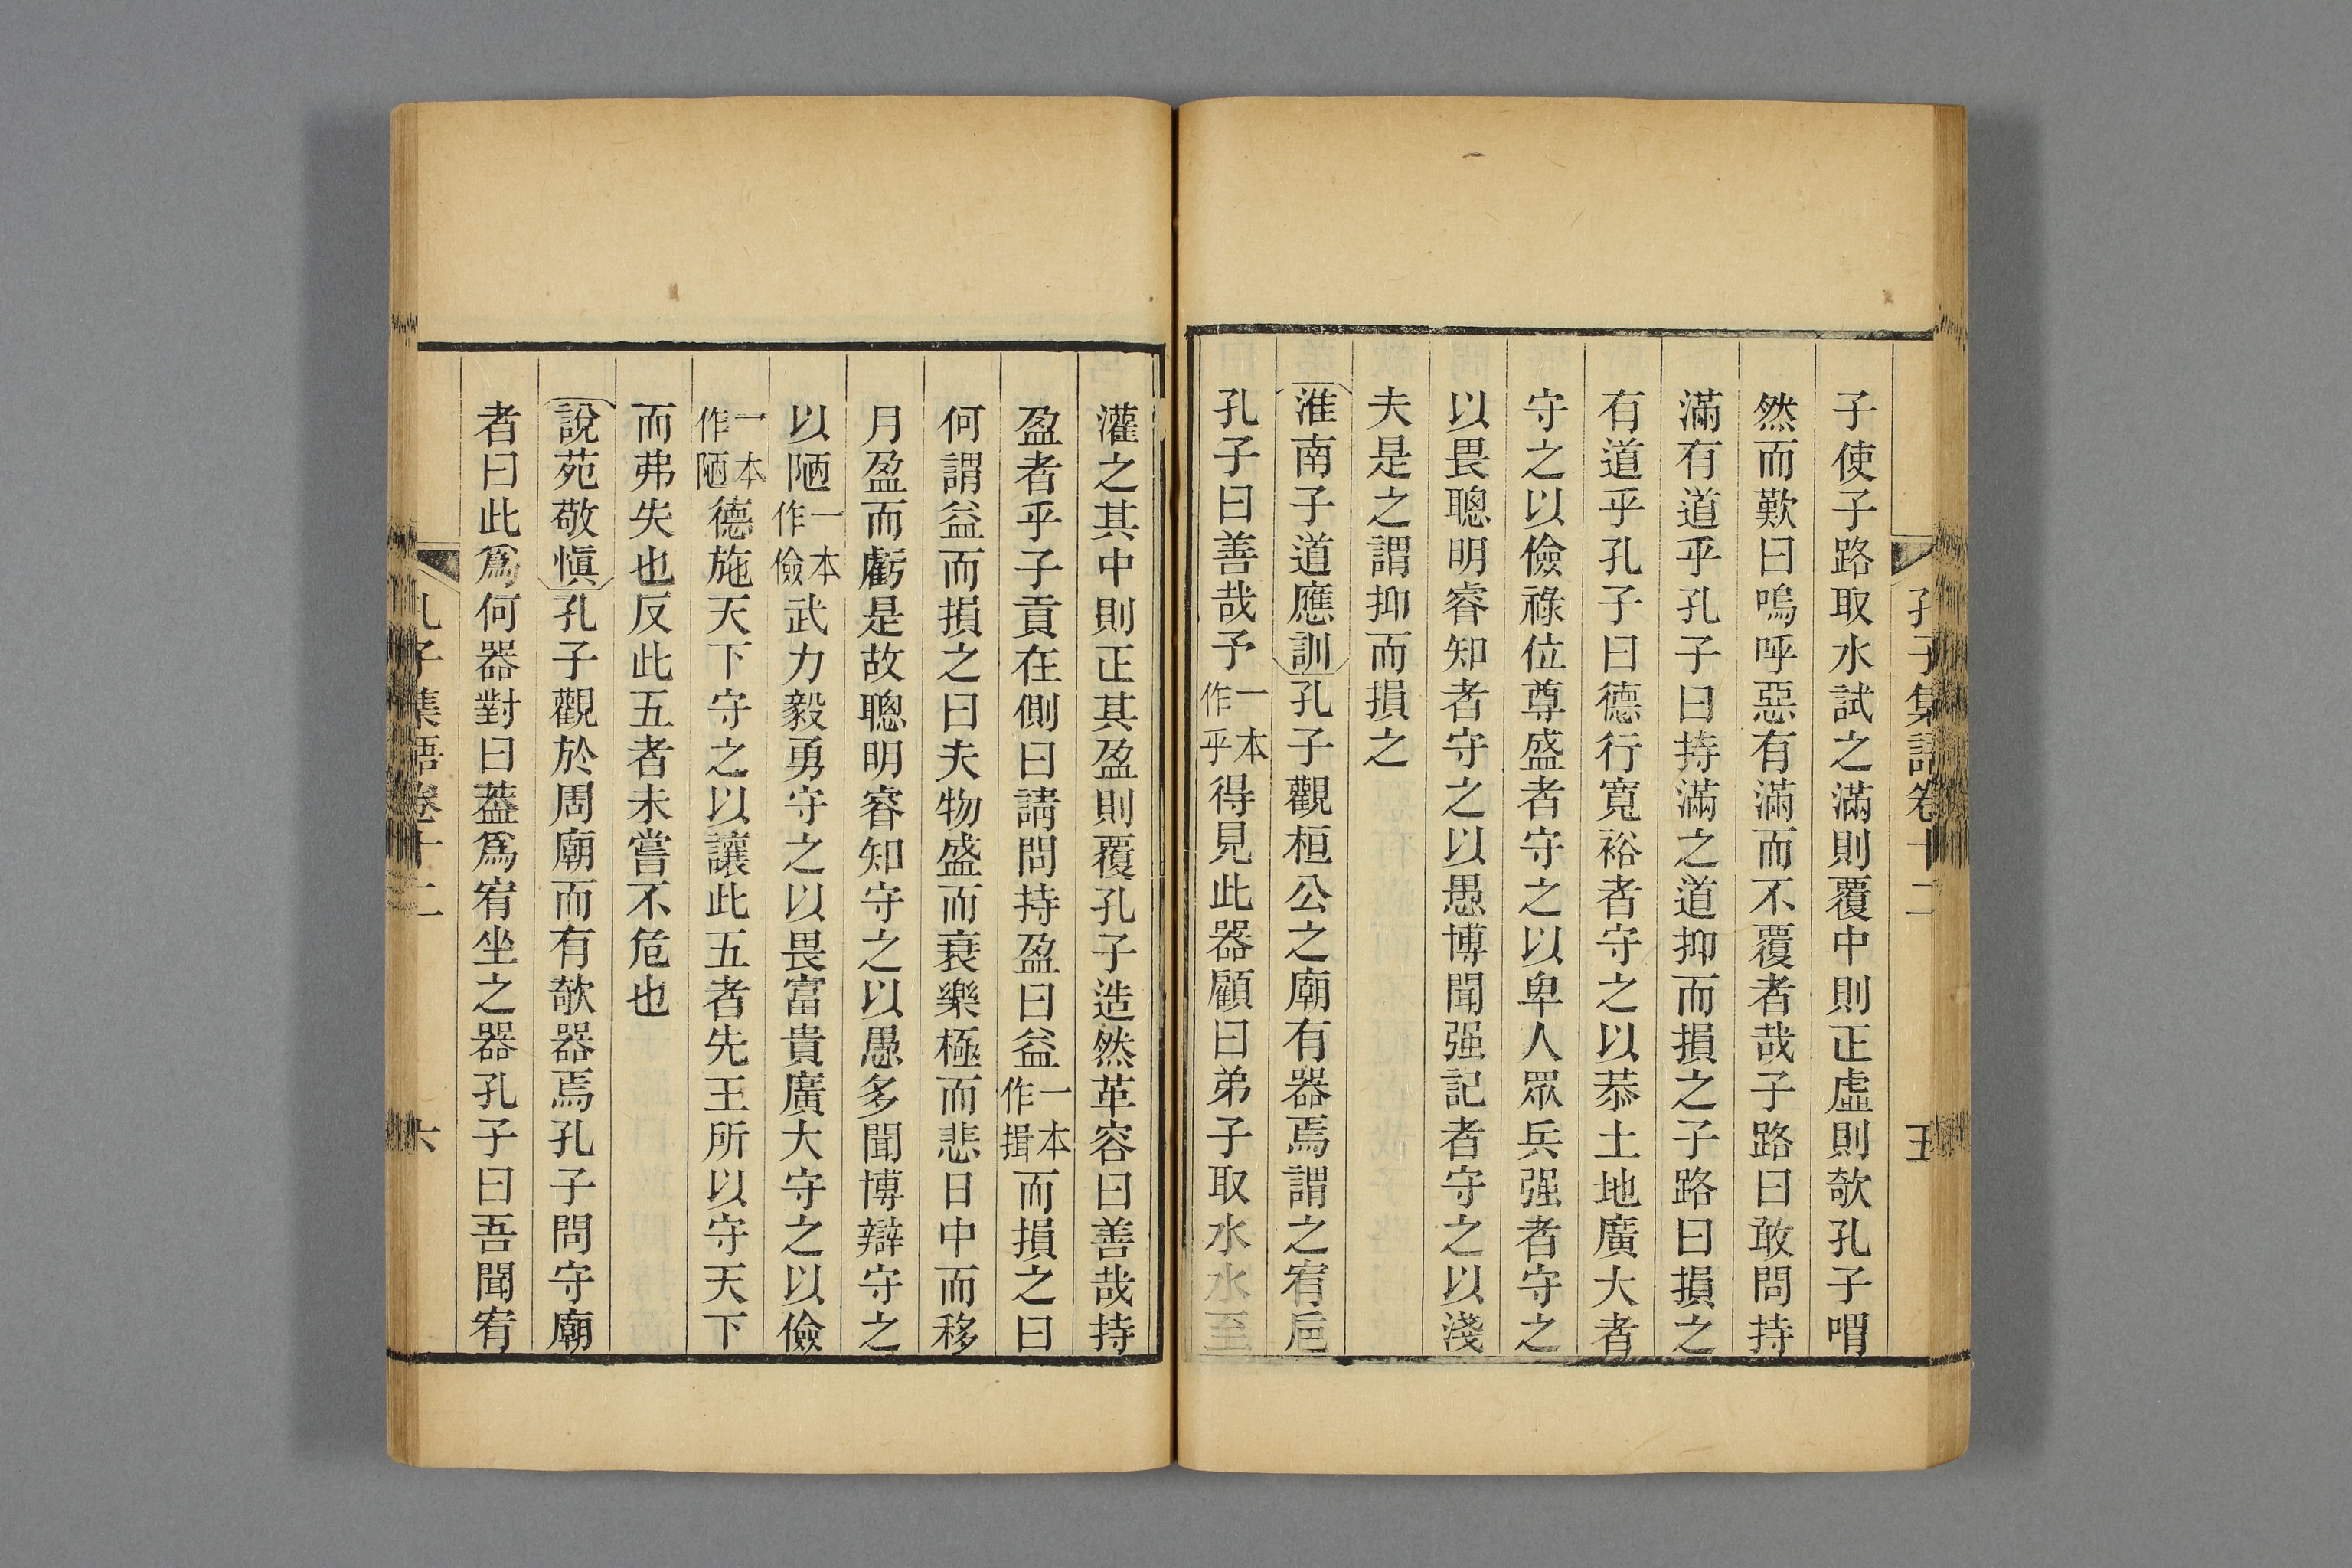 孔子集語卷十二 五
子使子路取水試之滿則覆中則正虛則欹孔子喟
然而歎曰嗚呼惡有滿而不覆者哉子路曰敢問持
滿有道乎孔子曰持滿之道抑而損之子路曰損之
有道乎孔子曰德行寬裕者守之以恭土地廣大者
守之以儉祿位尊盛者守之以卑人眾兵强者守之
以畏聰明睿知者守之以愚博聞强記者守之以淺
夫是之謂抑而損之
淮南子道應訓孔子觀桓公之廟有器焉謂之宥巵
孔子曰善哉予一本作乎得見此器顧曰弟子取水水至
灌之其中則正其盈則覆孔子造然革容曰善哉持
盈者乎子貢在側曰請問持盈曰益一本作揖而損之曰
何謂益而損之曰夫物盛而衰樂極而悲日中而移
月盈而虧是故聰明睿知守之以愚多聞博辯守之
以陋一本作儉武力毅勇守之以畏富貴廣大守之以儉
一本作陋德施天下守之以讓此五者先王所以守天下
而弗失也反此五者未嘗不危也
說苑敬愼孔子觀於周廟而有欹器焉孔子問守廟
者曰此爲何器對曰葢爲宥坐之器孔子曰吾聞宥
孔子集語卷十二 六